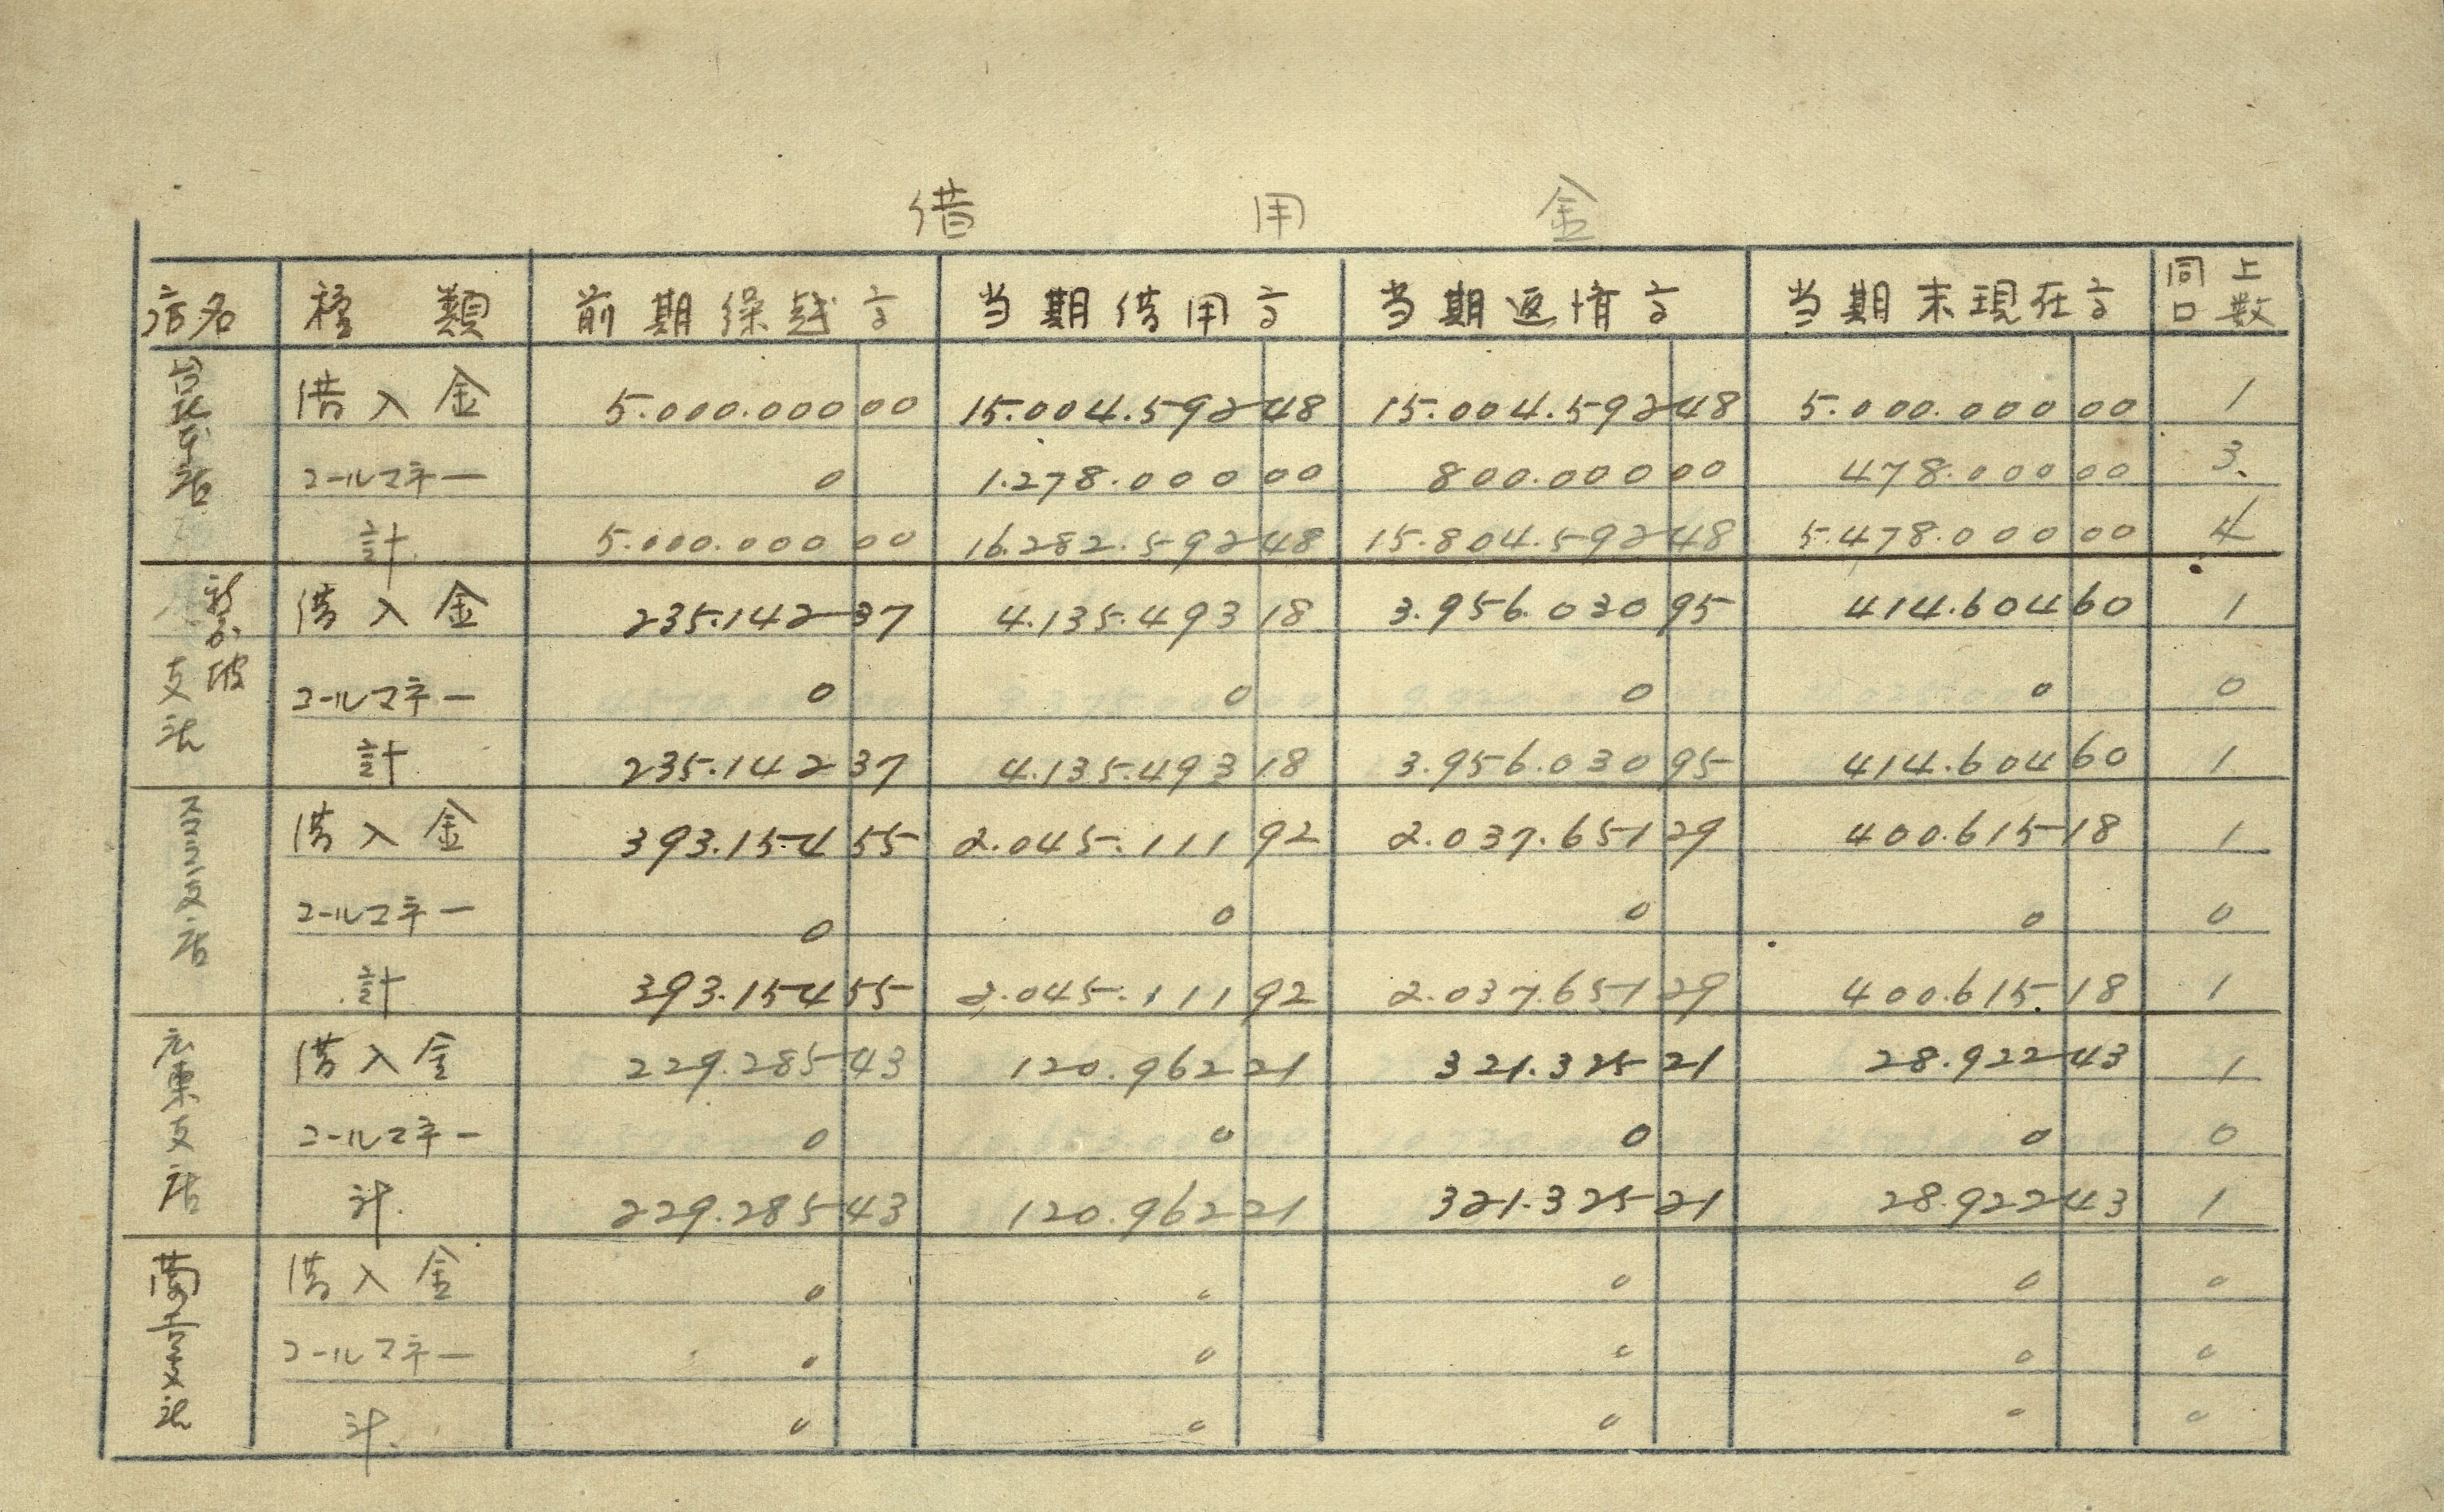 借用金
店名 種類 前期繰越高 当期借用高 当期返済高 当期末現在高 同上口数
台北支店 借入金 5.000.000 00 15.004.592 48 15.004.592 48 5.000.000 00 1
コールマネー 0 1.278.000 00 800.000 00 478.000 00 3
計 5.000.000 00 16.282.592 48 15.804.592 48 5.478.000 00 4
支店 借入金 235.142 37 4.135.493 18 3.956.030 95 414.604 60 1
コールマネー 0 0 0 0 0
計 235.142 37 4.135.493 18 3.956.030 95 414.604 60 1
支店 借入金 393.154 55 2.045.111 92 2.037.651 29 400.615 18 1
コールマネー 0 0 0 0 0
計 393.154 55 2.045.111 92 2.037.651 29 400.615 18 1
広東支店 借入金 229.285 43 120.962 21 321.325 21 28.922 43 1
コールマネー 0 0 0 0 0
計 229.285 43 120.962 21 321.325 21 28.922 43 1
支店 借入金 0 0 0 0 0
コールマネー 0 0 0 0 0
計 0 0 0 0 0